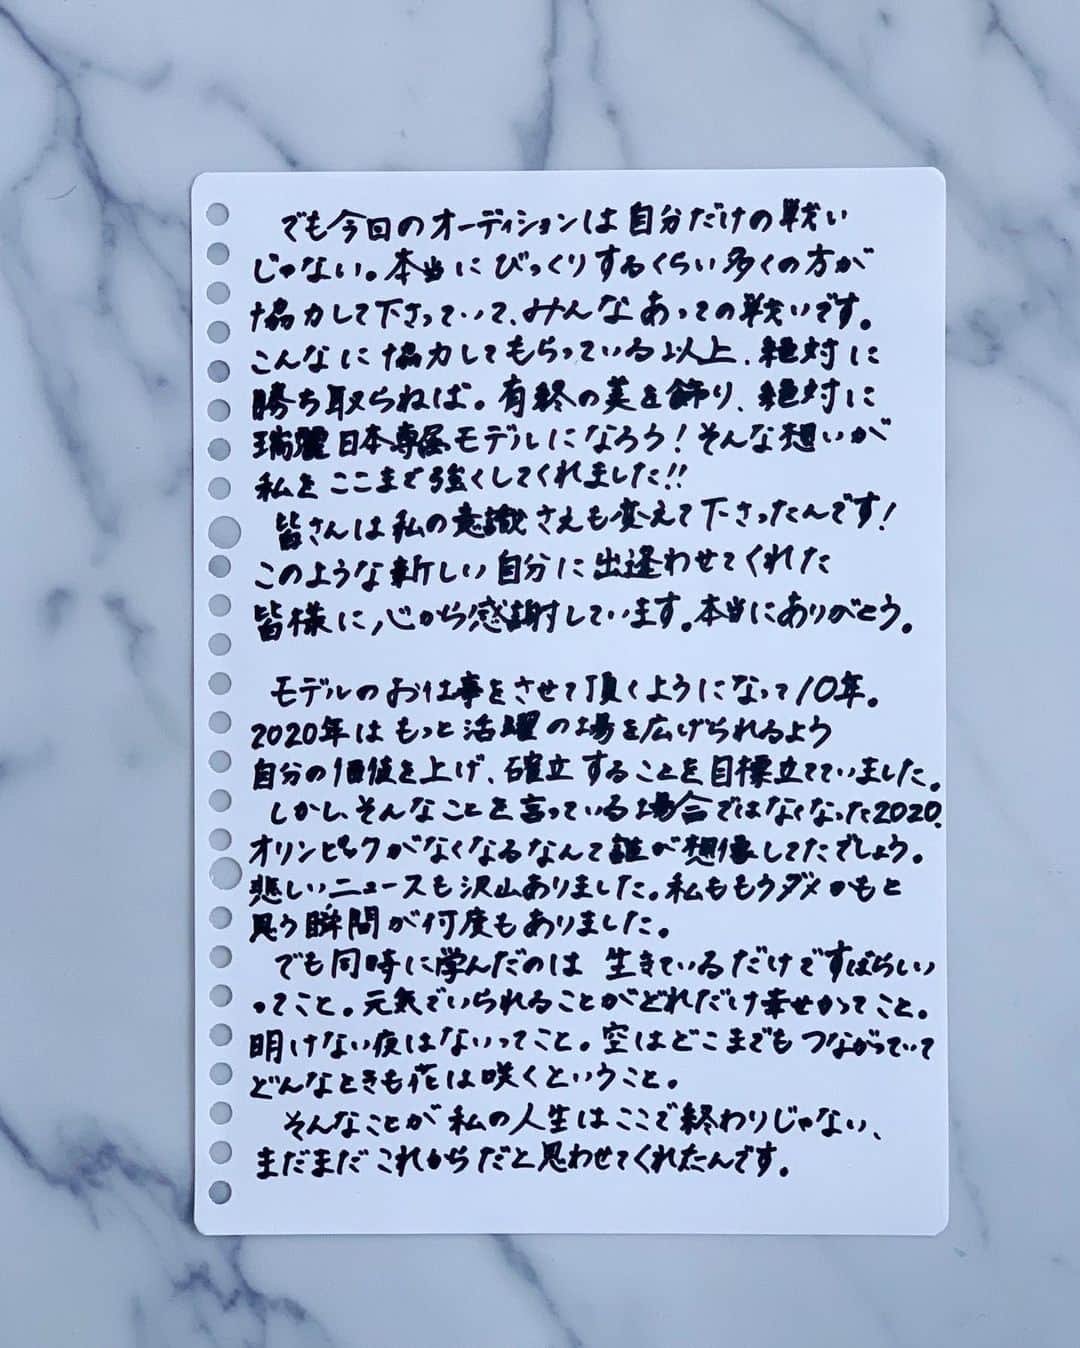 でも今回のオーディションは自分だけの戦い
じゃない。本当にびっくりするくらい多くの方が
協力して下さっていて、みんなあっての戦いです。
こんなに協力してもらっている以上、絶対に
勝ち取らねば。有終の美を飾り、絶対に
瑞麗日本専属モデルになろう!そんな想いが
私をここまで強くしてくれました!!
皆さんは私の意識さえも変えて下さったんです!
このような新しい自分に出逢わせてくれた
皆様に心から感謝しています。本当にありがとう。
モデルのお仕事をさせて頂くようになって10年。
2020年はもっと活躍の場を広げられるよう
自分の価値を上げ、確立することを目標立てていました。
しかし、そんなことを言っている場合ではなくなった2020.
オリンピックがなくなるなんて誰が想像してたでしょう。
悲しいニュースも沢山ありました。私ももうダメかもと
思う瞬間が何度もありました。
でも同時に学んだのは 生きているだけですばらしい
ってこと。元気でいられることがどれだけ幸せかってこと。
明けない夜はないってこと。空はどこまでもつながっていて
どんなときも花は咲くということ。
そんなことが私の人生はここで終わりじゃない、
まだまだこれからだと思わせてくれたんです。